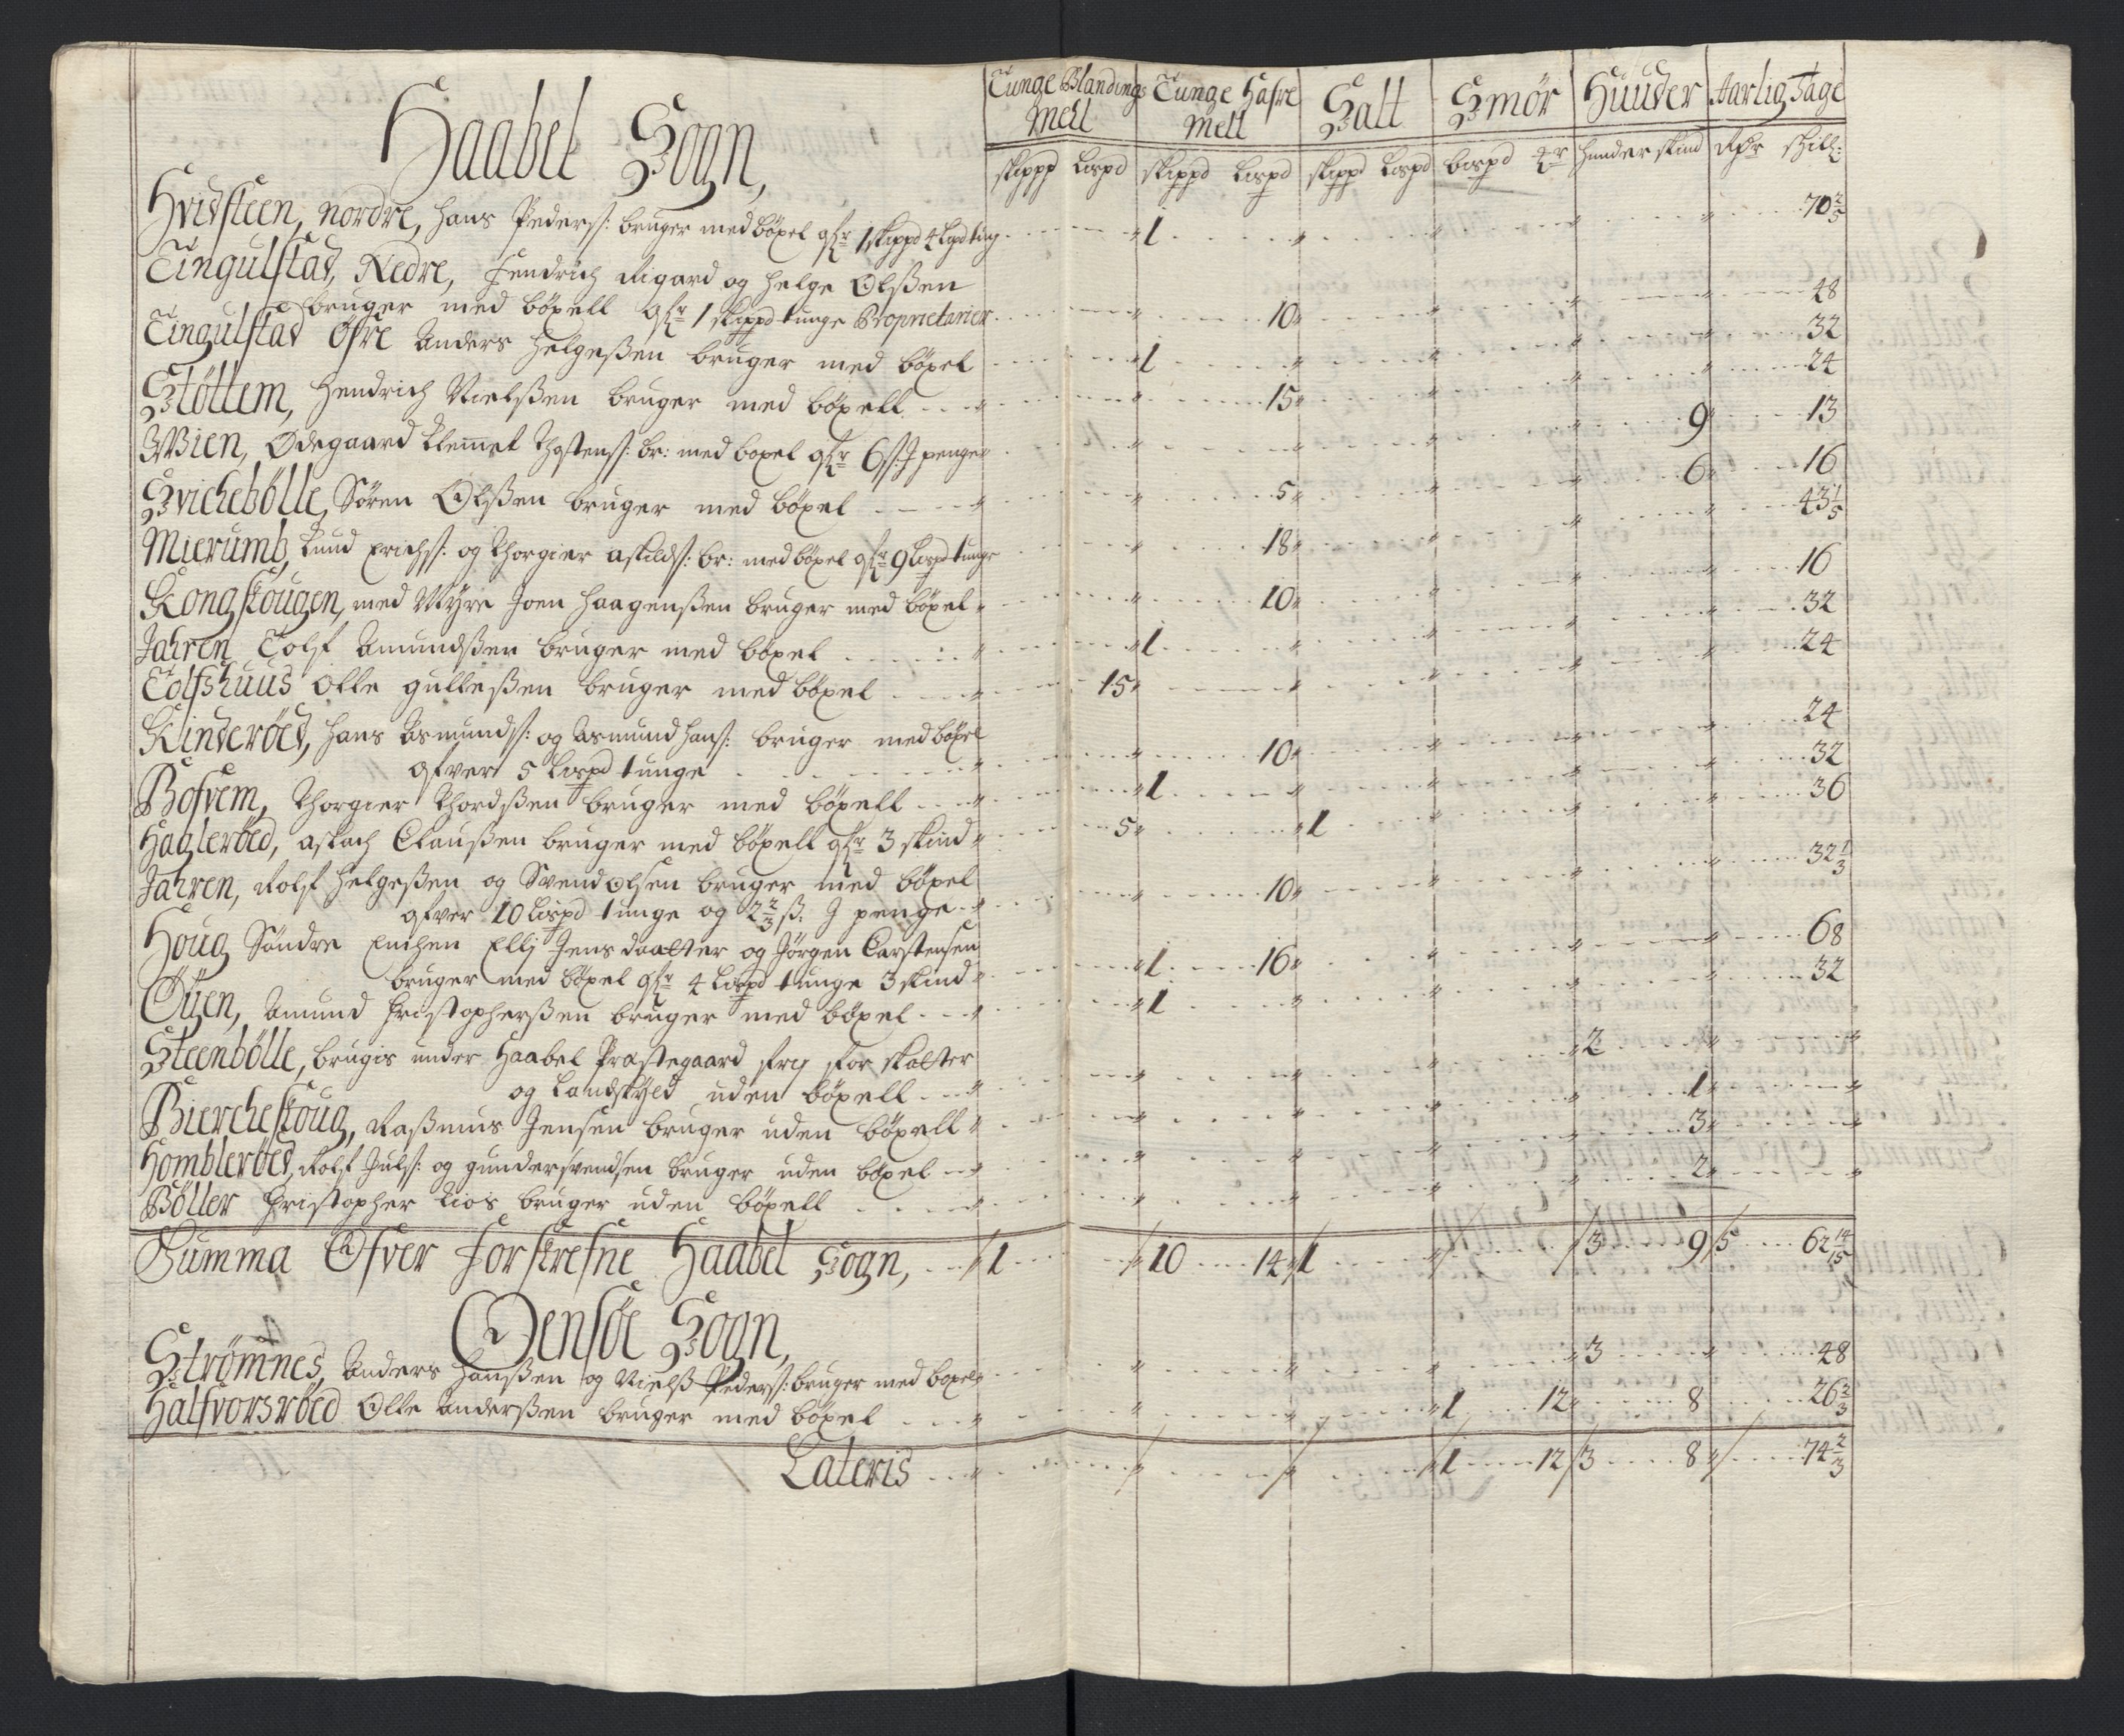 Tunge Blandings Mell | Tunge Hafre Mell | Salt | Smör | Huuder | Aarlig Tage
skippd Lispd | skippd Lispd | skippd Lispd | Bispd | hunder skind | Rdr skill:
Haabel Sogn,
Hvidsteen, nordre, Hans Peders: bruger med böxel ofr 1 skippd 4 lispd tung 1 70 2/5
Tingulstad, Nedre, Fendrich Rigard og Helge Olßen
bruger med böxell ofr 1 skippd tunge Proprietarier 10 48
Tingulstad Öfre Anders Helgeßen bruger med böxel 1 32
Stöttem, Hendrich Nielßen bruger med böxell 15 24
Wien, Ødegaard Klemet br: med boxel ofr 6 ß penge 9 13
Svichebölle, Sören Olßen bruger med böxel 5 6 16
Mierumb, Knud Erichs: og Thorgier Askilds: br: med böxel ofr 9 Lispd tunge 18 43 1/5
Kongskougen, med Myre Joen Haagenßen bruger med böxel 10 16
Jahren Tolf Amundßen bruger med böxel 1 32
Tolfshuus Olle gulleßen bruger med böxel 15 24
Kinderöed, Hans Asmunds: og Asmund Hans: bruger med böxel
ofver 5 Lispd tunge 10 24
Bofvem, Thorgier Thordßen bruger med böxell 1 32
Hagleröed, Aslach Claußen bruger med böxell ofr 3 skind 5 1 36
Jahren, Rolf Helgeßen og Svend Olsen bruger med böxel
ofver 10 Lispd tunge og 2 2/3 ß: J penge 10 32 1/3
Houg Söndre Enchen Ellj Jens daatter og Jörgen Carstensen
bruger med böxel ofr 4 Lispd tunge 3 skind 1 16 68
Öÿen, Amund Christopherßen bruger med böxel 1 32
Steenbölle, brugis under Haabel Præstegaard frij for skatter
og Landskyld uden böxell 2
Bierckeskoug, Raßmus Jensen bruger uden böxell 1
Hombleröed, Rolf Juls: og gunder svendsen bruger uden böxel 3
Böller Christopher bruger uden böxell 2
Summa Ofver Forskrefne Haabel Sogn, 1 10 14 1 3 9 5 62 14/15
Oensöe Sogn,
Strömnes, Anders Hanßen og Nielß Peders: bruger med boxel 3 48
Halfvorsröed Olle Anderßen bruger med böxel 1 12 8 26 2/3
Lateris 1 12 3 8 74 2/3